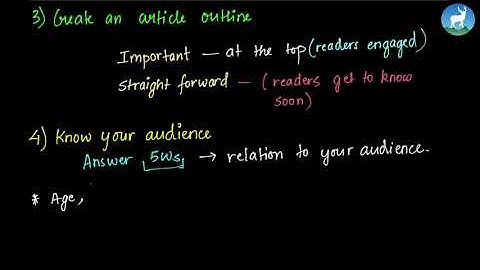 3) Create an article outline
Important — at the top (readers engaged)
Straight forward — (readers get to know
soon)
4) Know your audience
Answer 5Ws → relation to your audience.
* Age,